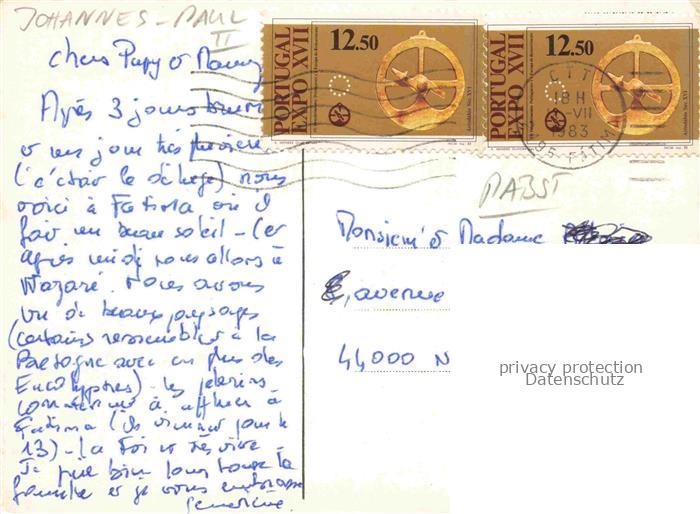 JOHANNES-PAUL
II
Chers Papy et Mamy
Après 3 jours
et un jour très
(c'était le déluge) nous
voici à Fatima où il
fait un beau soleil - Cet
après midi nous allons à
Nazaré. Nous avons
vu de beaux paysages
(certains ressemblent à la
Bretagne avec en plus des
Eucalyptus). les pèlerins
commencent à affluer à
Fatima (ils viennent pour le
13) - la Foi est très vive -
Je prie bien pour toute la
famille et je vous embrasse
PORTUGAL
EXPO XVII
12.50
PORTUGAL
EXPO XVII
12.50
CTT
18 H
-VII
983
FÁTIMA
PABST
Monsieur et Madame
, avenue
44000 N
privacy protection
Datenschutz